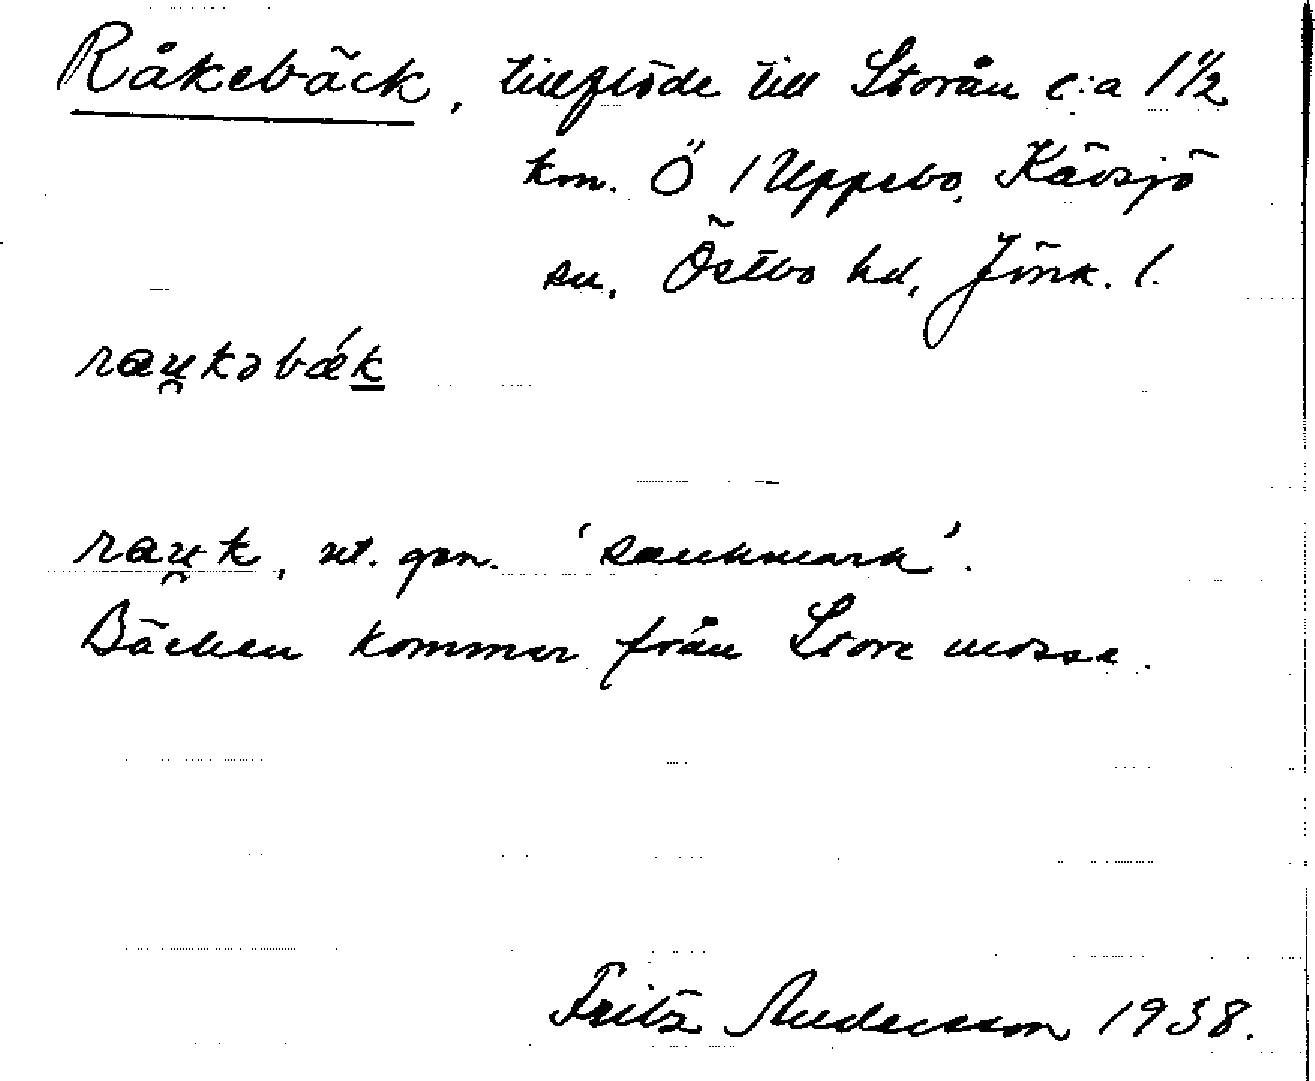 Råkebäck, tillflöde till Storån c:a 1 1/2
km. Ö / Uppebo, Kävsjö
sn, Östbo hd, Jönk. l.
rau̯kəbǽk
rau̯k, nt. gm. 'sankmark'.
Bäcken kommer från Store mosse.
Fritz Andersson 1938.